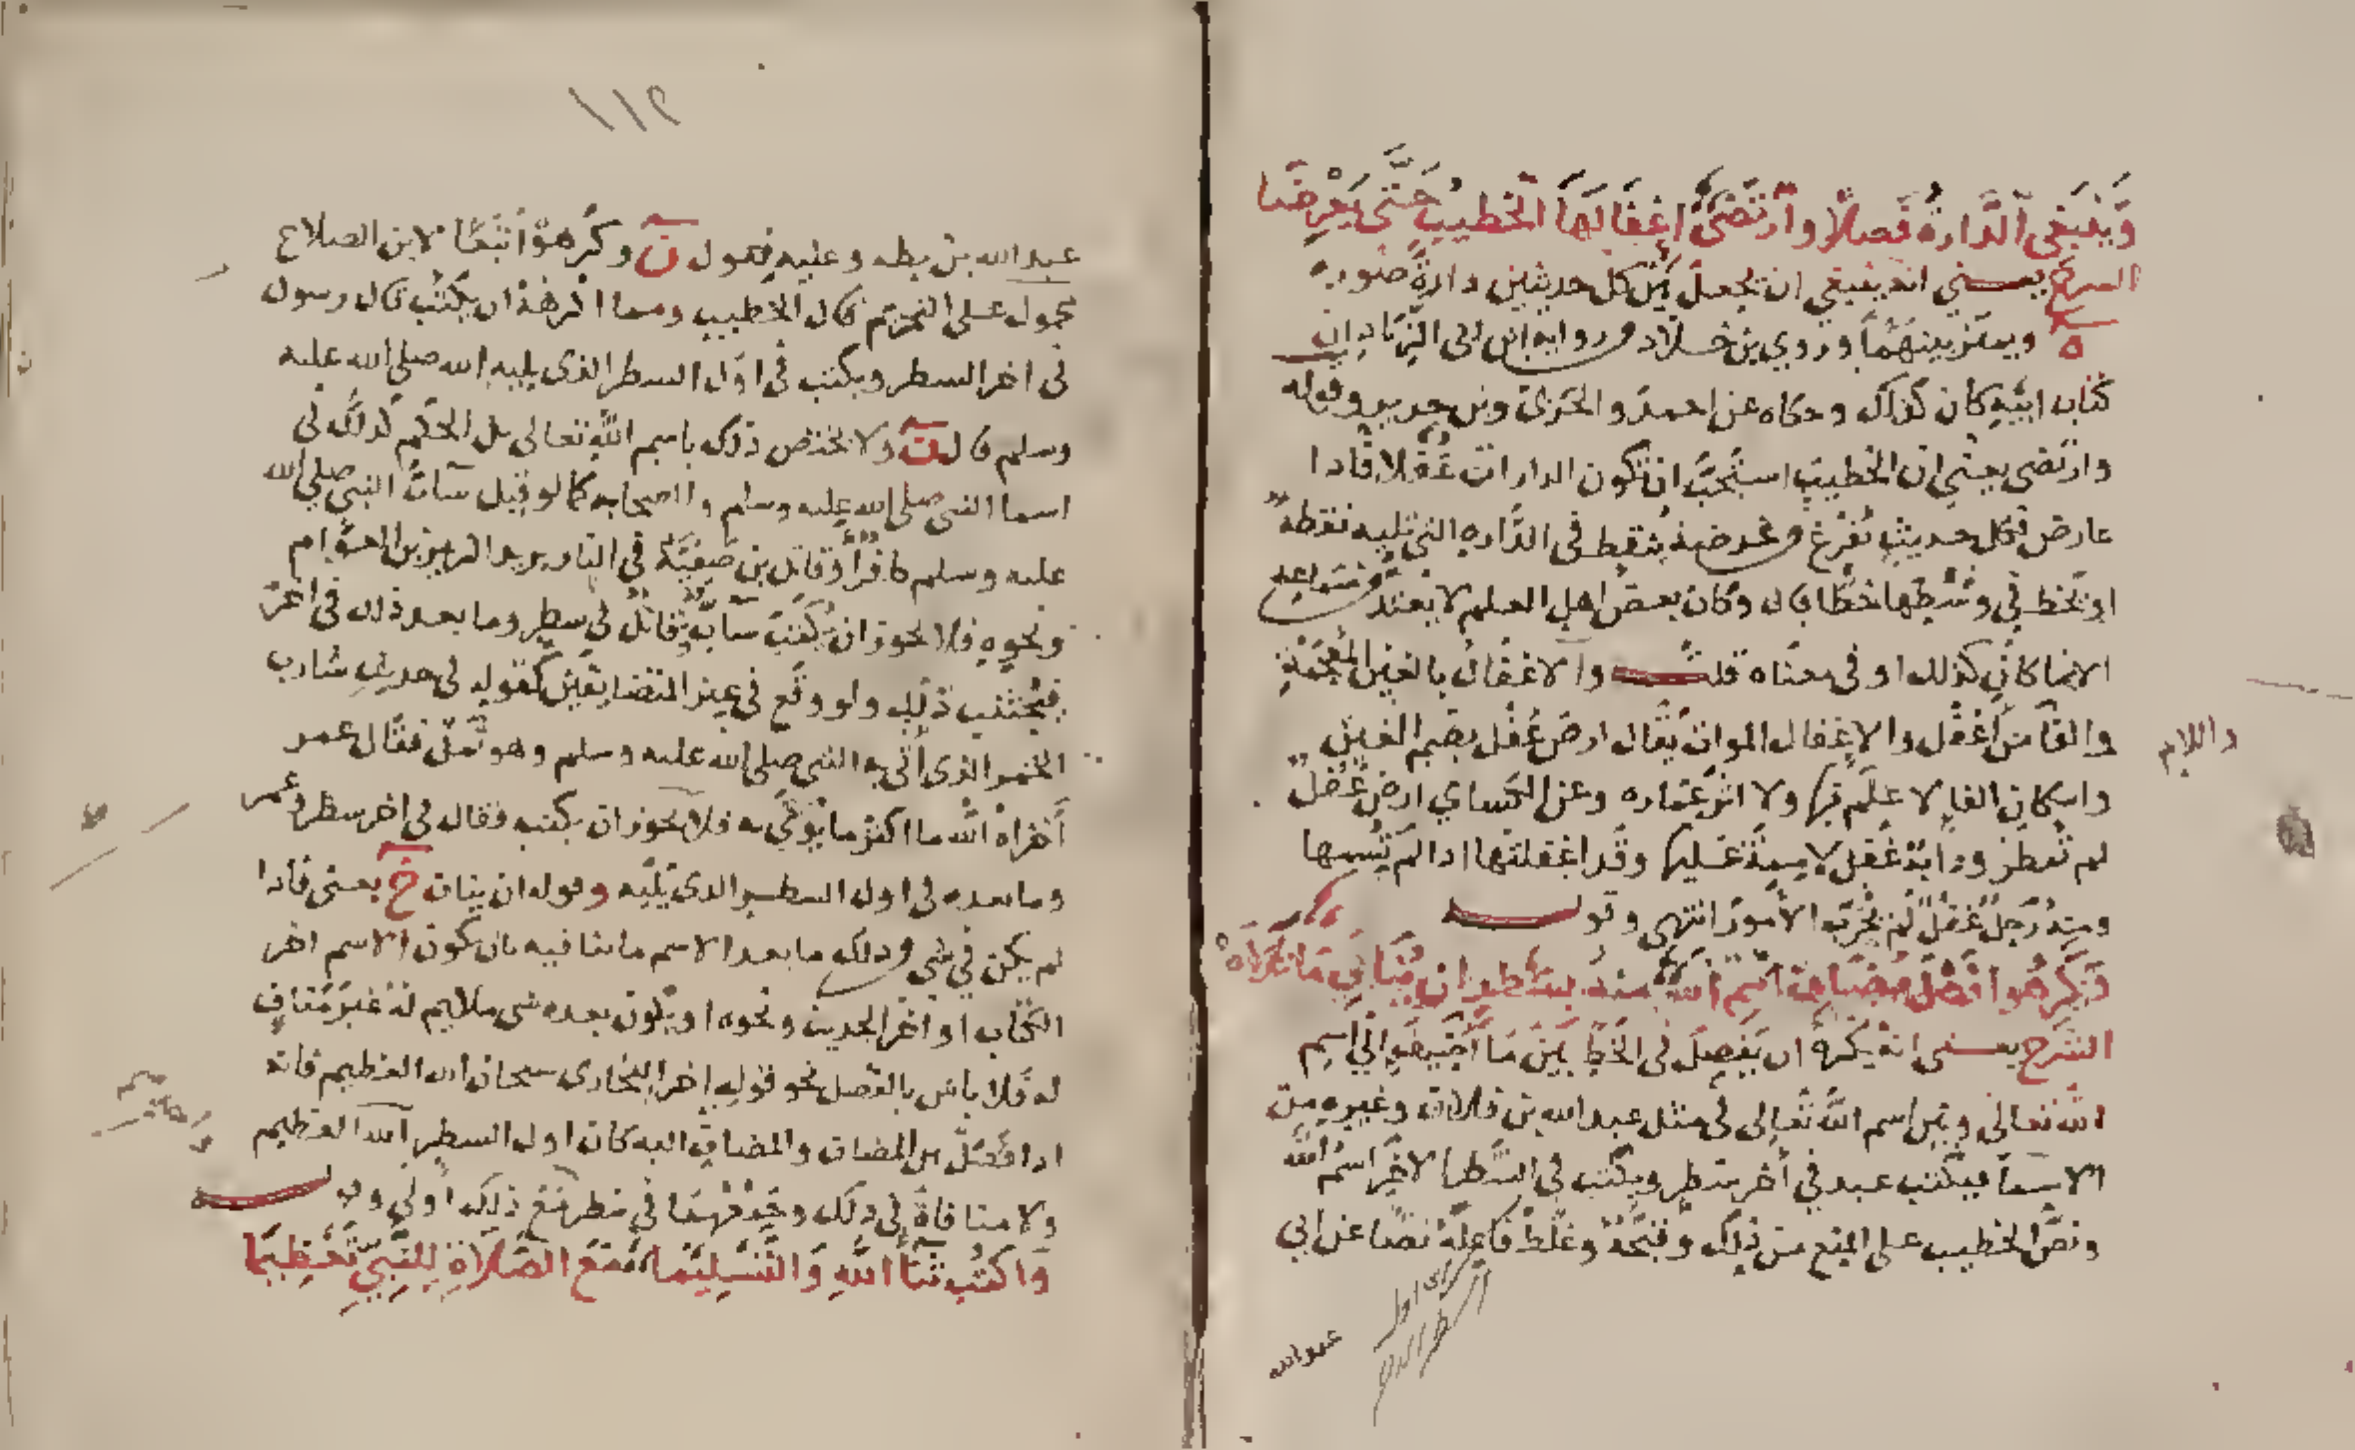 وَيَنبَغي الدَّارةُ فَصلًا وارتَضَى إغفَالَهَا الخطيبُ حَتَّى يُعرضَا
الشرح يعني انه ينبغي ان يجعل بين كل حديثين دارة صورة
ه ويميز بينهما وروي بن خلاد في رواية ابن ابي الزناد ان
كتاب ابيه كان كذلك وحكاه عن احمد والحربي وبن جرير وقوله
وارتضى يعني ان الخطيب استحب ان تكون الدارات غفلا فاذا
عارض فكل حديث يفرغ من عرضه ينقط في الداره التي تليه نقطة
او يخط في وسطها خطا قال وكان بعض اهل العلم لا يعتد من سماعه
الا بما كان كذلك او في معناه قلت والاغفال بالغين المعجمة
والفا من اغفل والاغفال الموات يقال ارض غفل بضم الغين
واسكان الفا لا علم بها ولا اثر عماره وعن الكساي ارض غفل
لم تمطر ودابة غفل لا سمة عليها وقد اغفلتها اذا لم تسمها
ومنه رجل غفل لم يجرب الامور انتهى وقوله
وَكَرِهُوا فَصْلَ مُضَاف اسْمِ الله منهُ بسَطر ان يُنَافِي مَا تلَاهْ
الشرح يعني انه يكره ان يفصل في الخط بين ما اضيف الى اسم
الله تعالى وبين اسم الله تعالى في مثل عبد الله بن فلان وغيره من
الاسما فيكتب عبد في اخر سطر ويكتب في السطر الاخر اسم الله
ونص الخطيب على المنع من ذلك وقبحه وغلط فاعله نصا عن ابي
عبد الله
واللام
١١٢
عبد الله بن بطه وعليه فقول ن وكرهوا تبعا لابن الصلاح
محمول على التحريم قال الخطيب ومما اكرهه ان يكتب قال رسول
في اخر السطر ويكتب في اول السطر الذي يليه الله صلى الله عليه
وسلم قال ن ولا يختص ذلك باسم الله تعالى بل الحكم كذلك في
اسما النبي صلى الله عليه وسلم والصحابه كما لو قيل ساب النبي صلى الله
عليه وسلم كافر او قاتل بن صفية في النار يريد الزبير بن العوام
ونحوه فلا يجوز ان يكتب ساب او قاتل في سطر وما بعد ذلك في اخر
فيجتنب ذلك ولو وقع في غير المتضايفين كقوله في حديث شارب
الخمر الذي أتي به النبي صلى الله عليه وسلم وهو ثمل فقال عمر
أخزاه الله ما اكثر ما يوتى به فلا يجوز ان يكتب فقال في اخر سطر وعمر
وما بعده في اول السطر الذي يليه وقوله ان يناف خ يعني فاذا
لم يكن في شي من ذلك ما بعد الاسم ما ينافيه بان يكون الاسم اخر
الكتاب او اخر الحديث ونحوه او يكون بعده شي ملايم له غير مناف
له فلا باس بالفصل نحو قوله اخر البخاري سبحان الله العظيم فانه
اذا فصل بين المضاف والمضاف اليه كان اول السطر الله العظيم
ولا منافاة في ذلك وجمعهما في سطر مع ذلك اولى وقوله
وَاكتُب ثنَاَ اللهِ وَالتَّسْلِيمَا مَعَ الصَّلاةِ لِلنَّبِيِّ تَعْظِيمَا